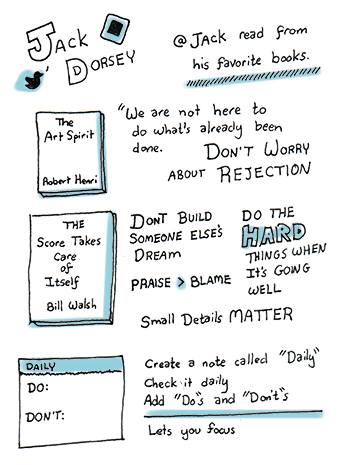 Jack
Dorsey
@Jack read from
his favorite books.
The
Art Spirit
Robert Henri
"We are not here to
do what's already been
done.
DON'T WORRY
ABOUT REJECTION
THE
Score Takes
Care
of
Itself
Bill Walsh
DONT BUILD
SOMEONE ELSE'S
DREAM
PRAISE > BLAME
DO THE
HARD
THINGS WHEN
IT'S GOING
WELL
Small Details MATTER
DAILY
DO:
DON'T:
Create a note called "Daily"
Check it daily
Add "Do"s and "Don't"s
Lets you focus